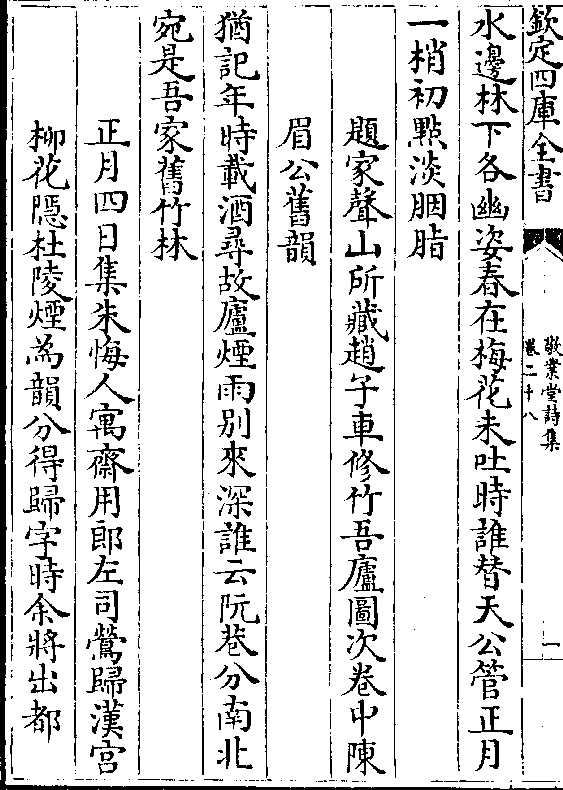 欽定四庫全書
敬業堂詩集
卷二十八
一
水邊林下各幽姿春在梅花未吐時誰替天公管正月
一梢初點淡胭脂
題家聲山所藏趙子車修竹吾廬圖次卷中陳
眉公舊韻
猶記年時載酒尋故廬煙雨别來深誰云阮巷分南北
宛是吾家舊竹林
正月四日集朱悔人寓齋用郎左司鶯歸漢宮
柳花隱杜陵煙為韻分得歸字時余將出都